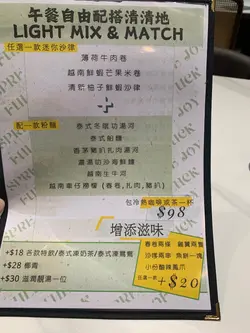 午餐自由配搭清清地
LIGHT MIX & MATCH
任選一款迷你沙律
薄荷牛肉卷
越南鮮蝦芒果米卷
清新柚子鮮蝦沙律
+
配一款粉麵
泰式冬蔭功湯河
泰式船麵
香茅豬扒扎肉湯河
越南生牛河
越南車仔撈檬 (春卷,扎肉,豬扒)
包冷/熱咖啡或茶一杯
$98
增添滋味
+$18 各款特飲/泰式凍奶茶/泰式凍鴛鴦
+$28 椰青
+$30 滋潤靚湯一位
春卷兩條
雞翼兩隻
魚餅一塊
小份酸辣鳳爪
任選一款
+$20
JOY